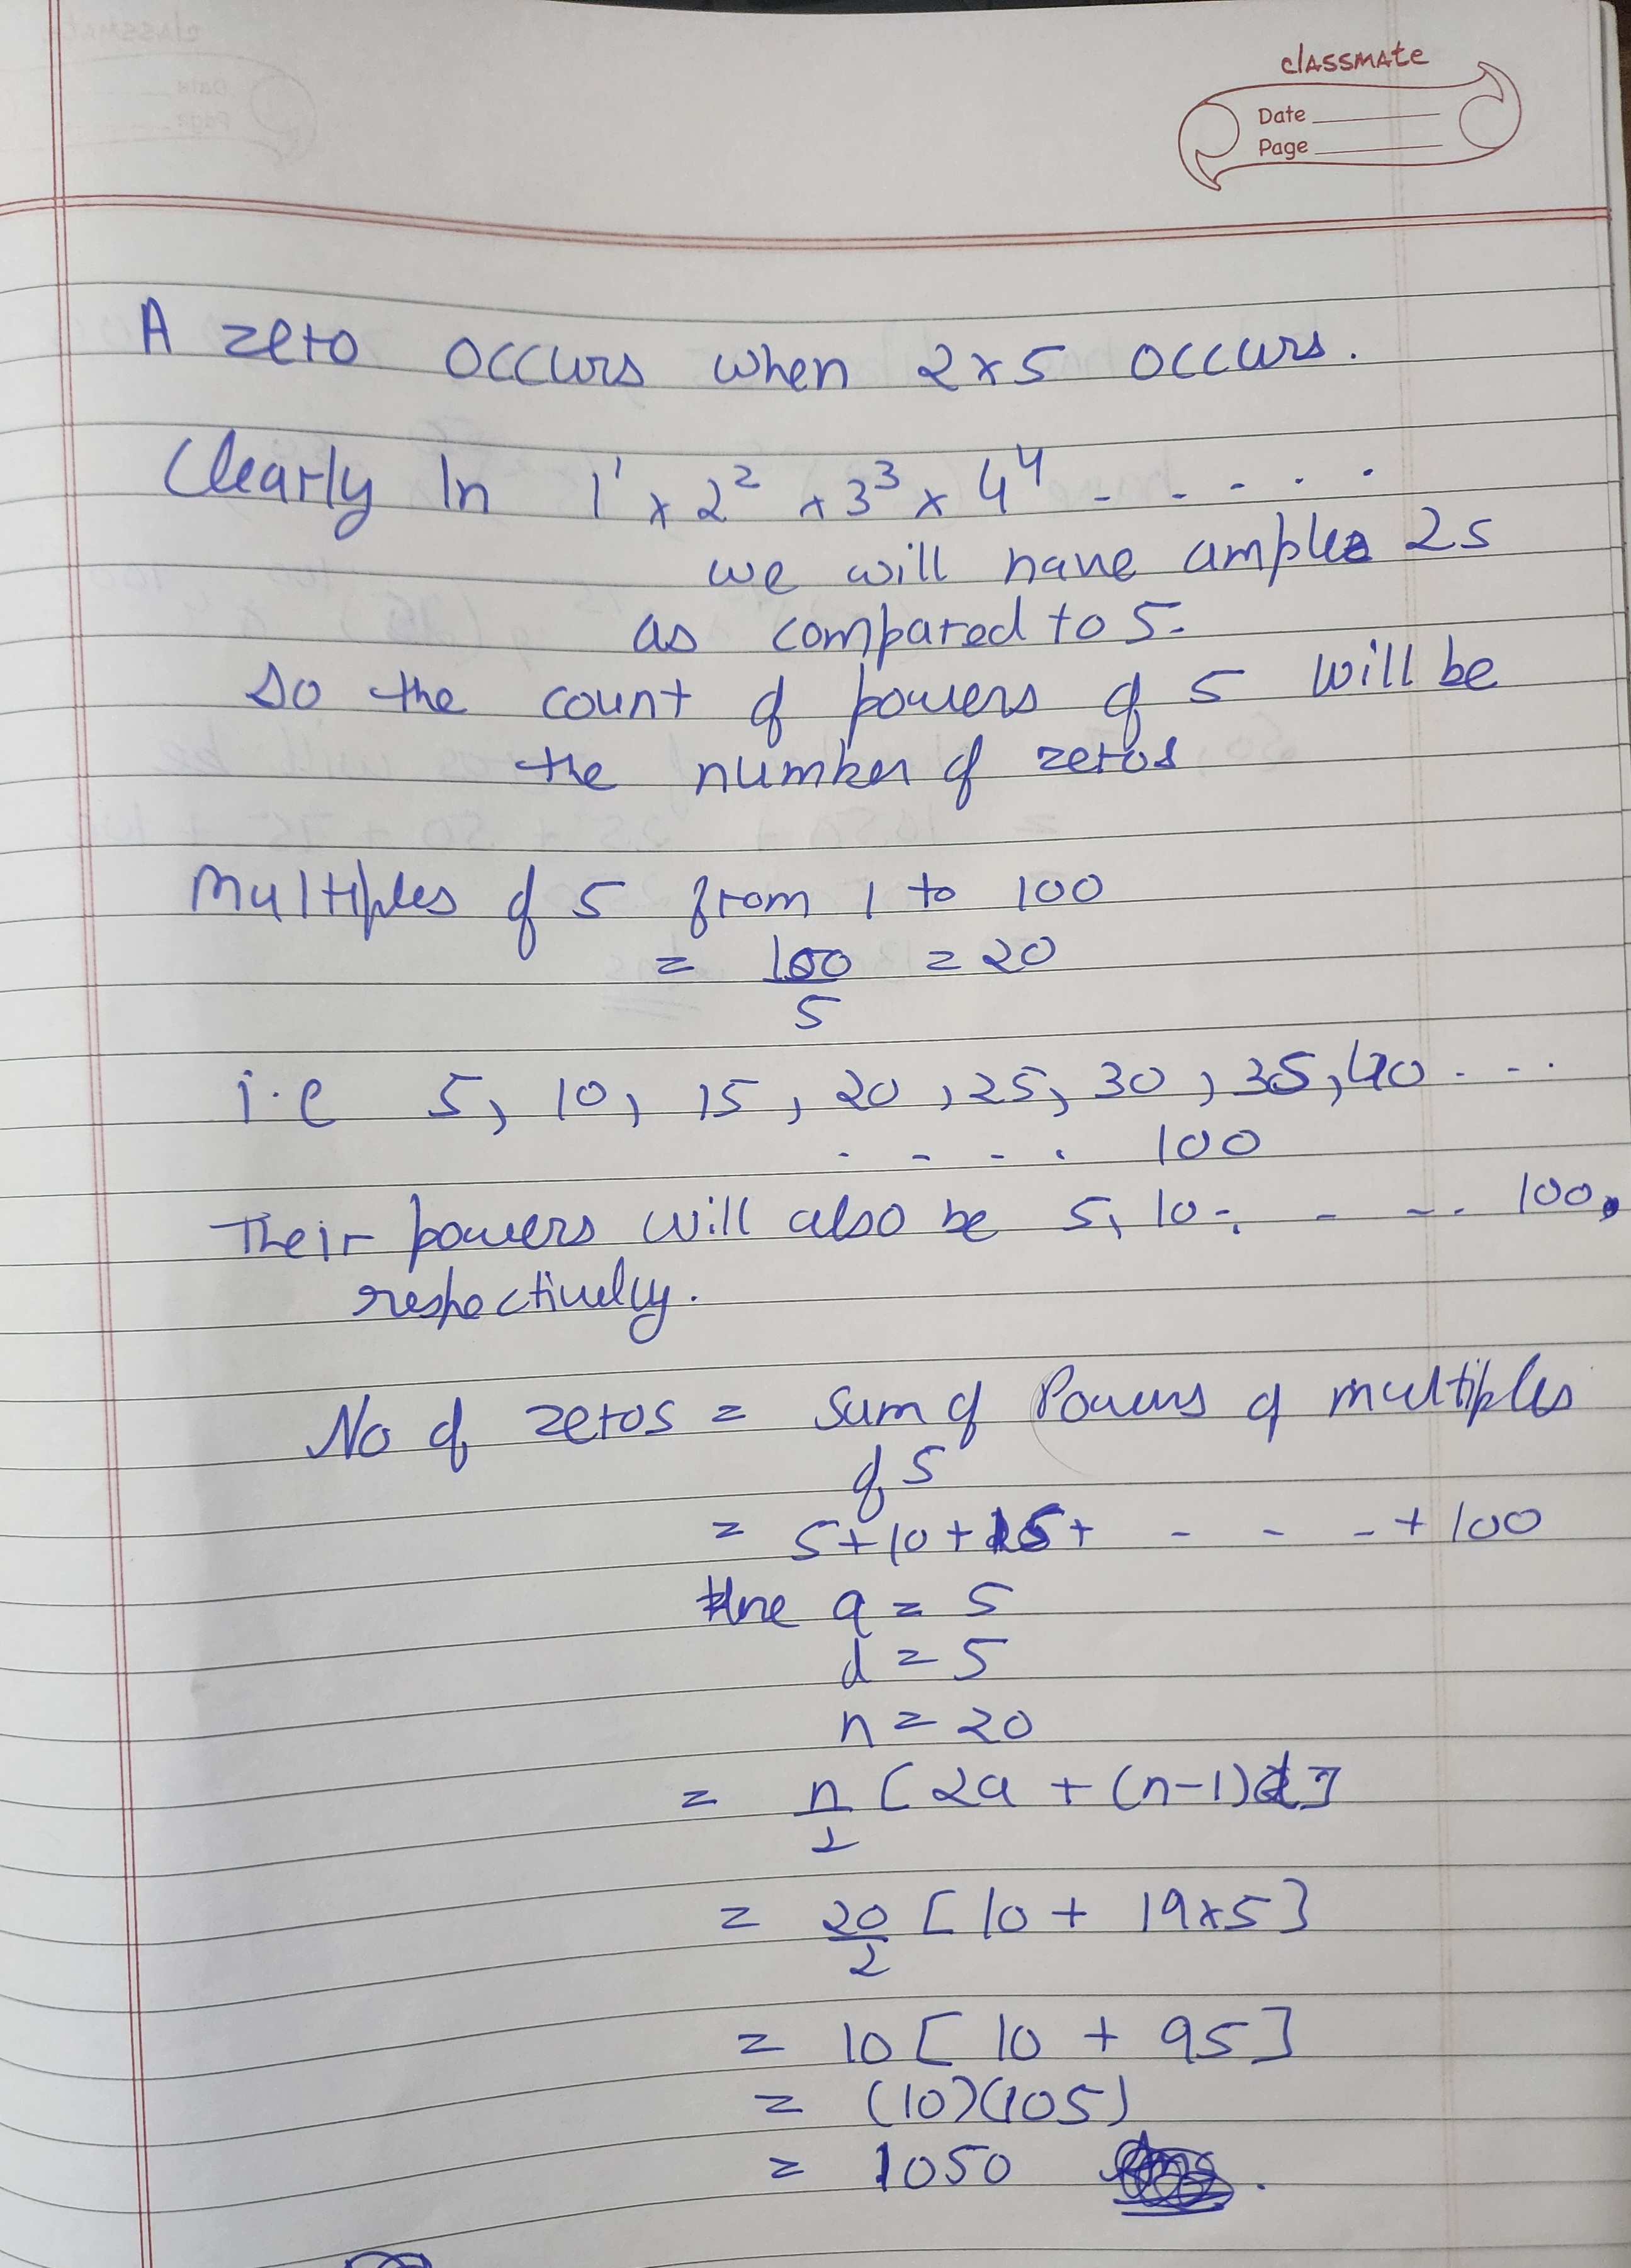 classmate
Date
Page
A zero occurs when 2x5 occurs.
Clearly In 1¹ x 2² x 3³ x 4⁴ - - - . . .
we will have ample 2s
as compared to 5.
So the count of powers of 5 will be
the number of zeros
Multiples of 5 from 1 to 100
= 100/5 = 20
i.e 5, 10, 15, 20, 25, 30, 35, 40 . . .
. - - . 100
Their powers will also be 5, 10 - . - - - . 100,
respectively.
No of zeros = Sum of Powers of multiples
of 5
= 5+10+15+ - - - + 100
Here a = 5
d = 5
n = 20
= n/2 [2a + (n-1)d]
= 20/2 [10 + 19x5]
= 10 [10 + 95]
= (10)(105)
= 1050